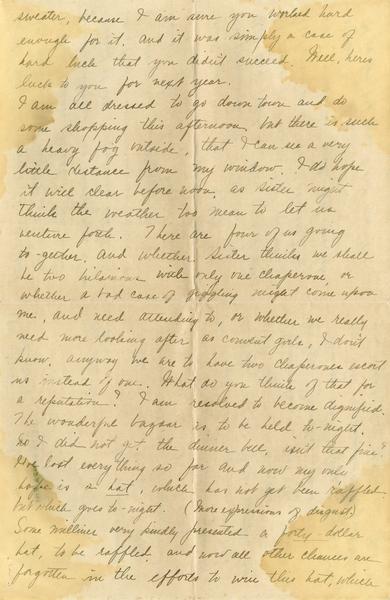 sweater, because I am sure you worked hard
enough for it. and it was simply a case of
hard luck that you didn't succeed. Well, heres
luck to you for next year.
I am all dressed to go down town and do
some shopping this afternoon, but there is such
a heavy fog outside, that I can see a very
little distance from my window. I do hope
it will clear before noon, as sister might
think the weather too mean to let us
venture forth. There are four of us going
to-gether, and whether sister thinks we shall
be two hilarious with only one chaperone, or
whether a bad case of giggling might come upon
me, and need attending to, or whether we really
need more looking after as convent girls, I don't
know. anyway we are to have two chaperones escort
us instead of one. What do you think of that for
a reputation? I am resolved to become dignified.
The wonderful bazaar is to be held to-night.
no I did not get the dinner bell, isn't that fine?
I've lost everything so far and now my only
hope is a hat, which has not yet been raffled
but which goes to-night. (more expressions of disgust)
Some milliner very kindly presented a forty-dollar
hat, to be raffled. and now all other chances are
forgotten in the efforts to win this hat, which